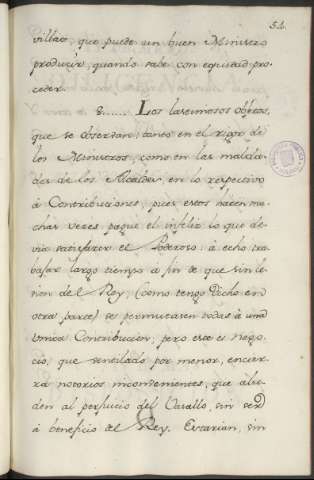 54.
villas, que puede un buen Ministro
producir, quando sabe con equidad pro-
ceder.
8....... Los lastimosos efectos,
que se observan, tanto en el rigor de
los Ministros, como en las malda-
des de los Alcaldes, en lo respectivo
à Contribuciones, pues estos hacen mu-
chas veces pague el infeliz lo que de-
via satisfacer el Poderoso: à echo tra-
bajar largo tiempo a fin de que sin le-
sion del Rey, (como tengo dicho en
otra parte) se permutasen todas à una
Unica Contribucion; pero este es nego-
cio, que ventilado por menor, encier-
ra notorios inconvenientes, que alu-
den al perjuicio del Vasallo, sin ser
à beneficio del Rey. Escarian, sin